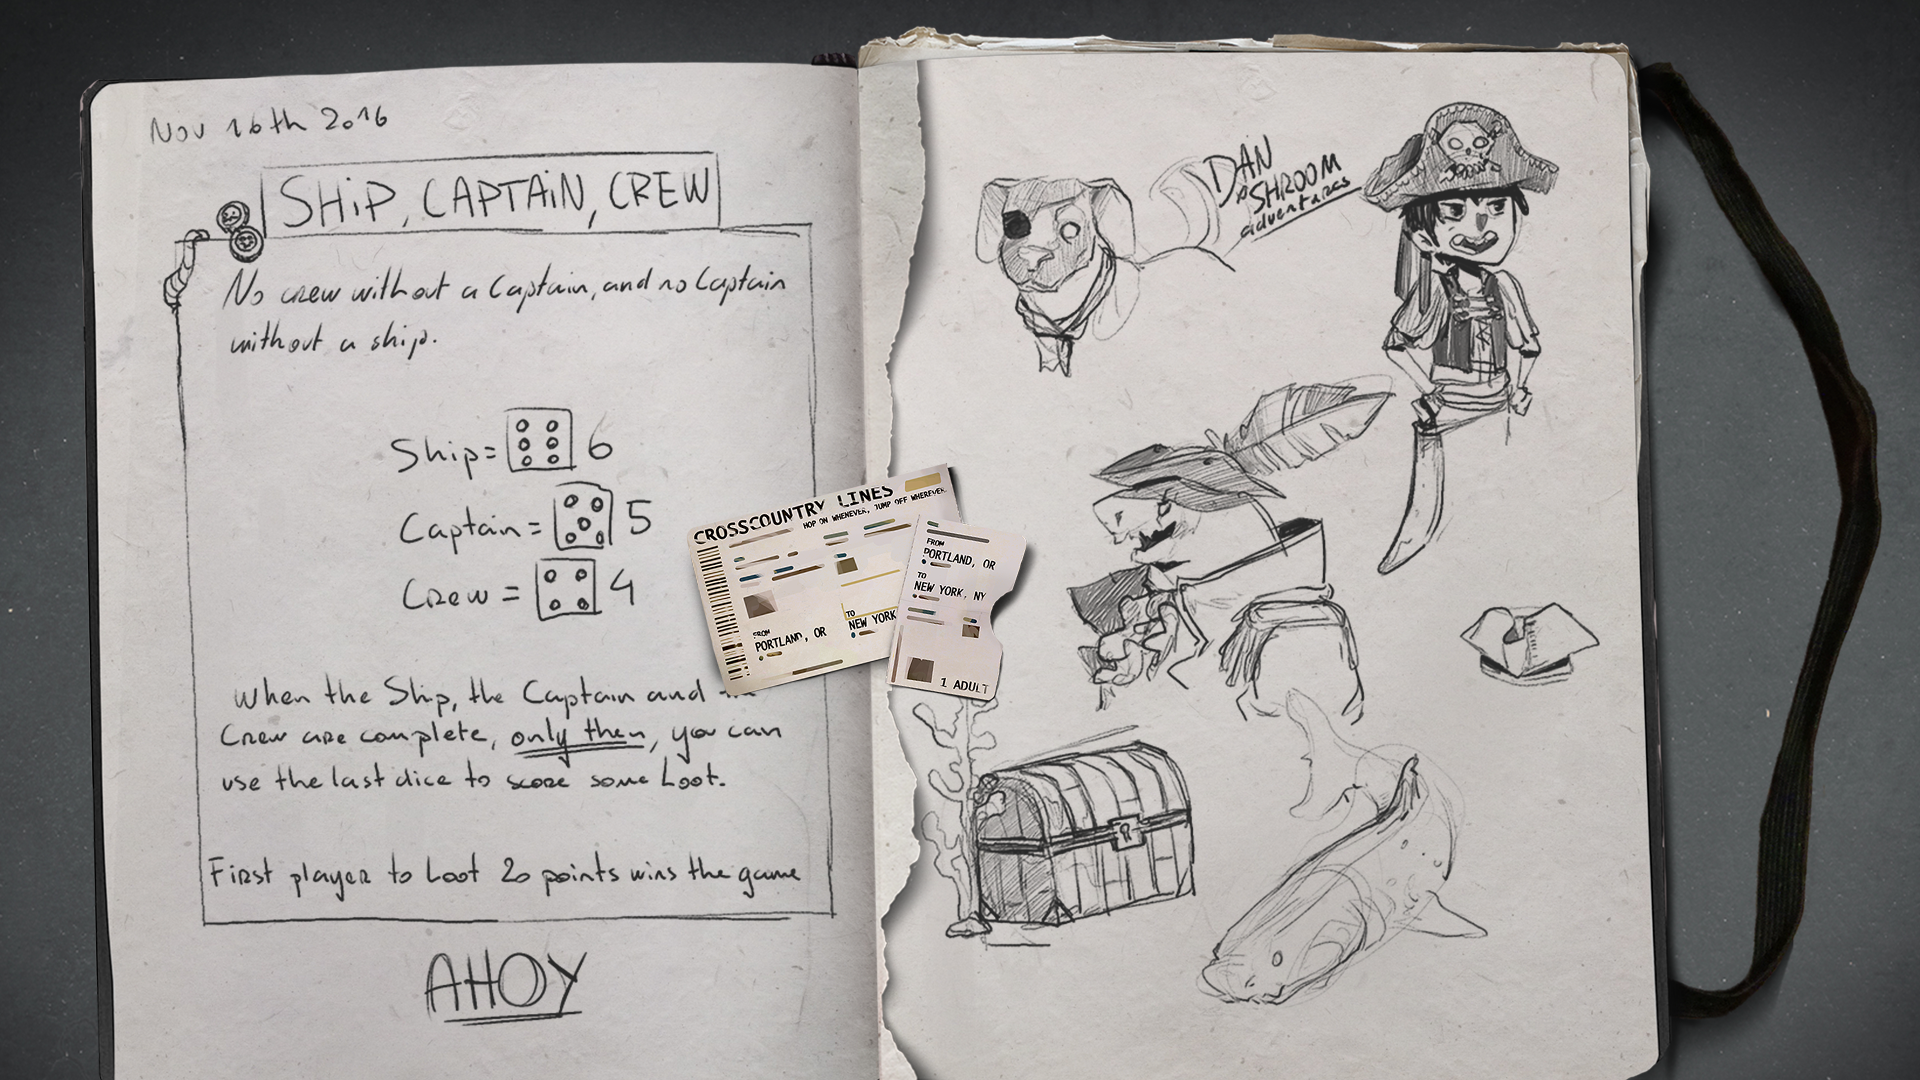 Nov 16th 2016
SHiP, CAPTAiN, CREW
No crew without a Captain, and no Captain
without a ship.
Ship= 6
Captain= 5
Crew = 4
When the Ship, the Captain and
Crew are complete, only then, you can
use the last dice to score some Loot.
First player to Loot 20 points wins the game
AHOY
CROSSCOUNTRY LINES
HOP ON WHENEVER, JUMP OFF WHEREVER
FROM
PORTLAND, OR
TO
NEW YORK
FROM
PORTLAND, OR
TO
NEW YORK, NY
1 ADULT
DAN
& SHROOM
adventures